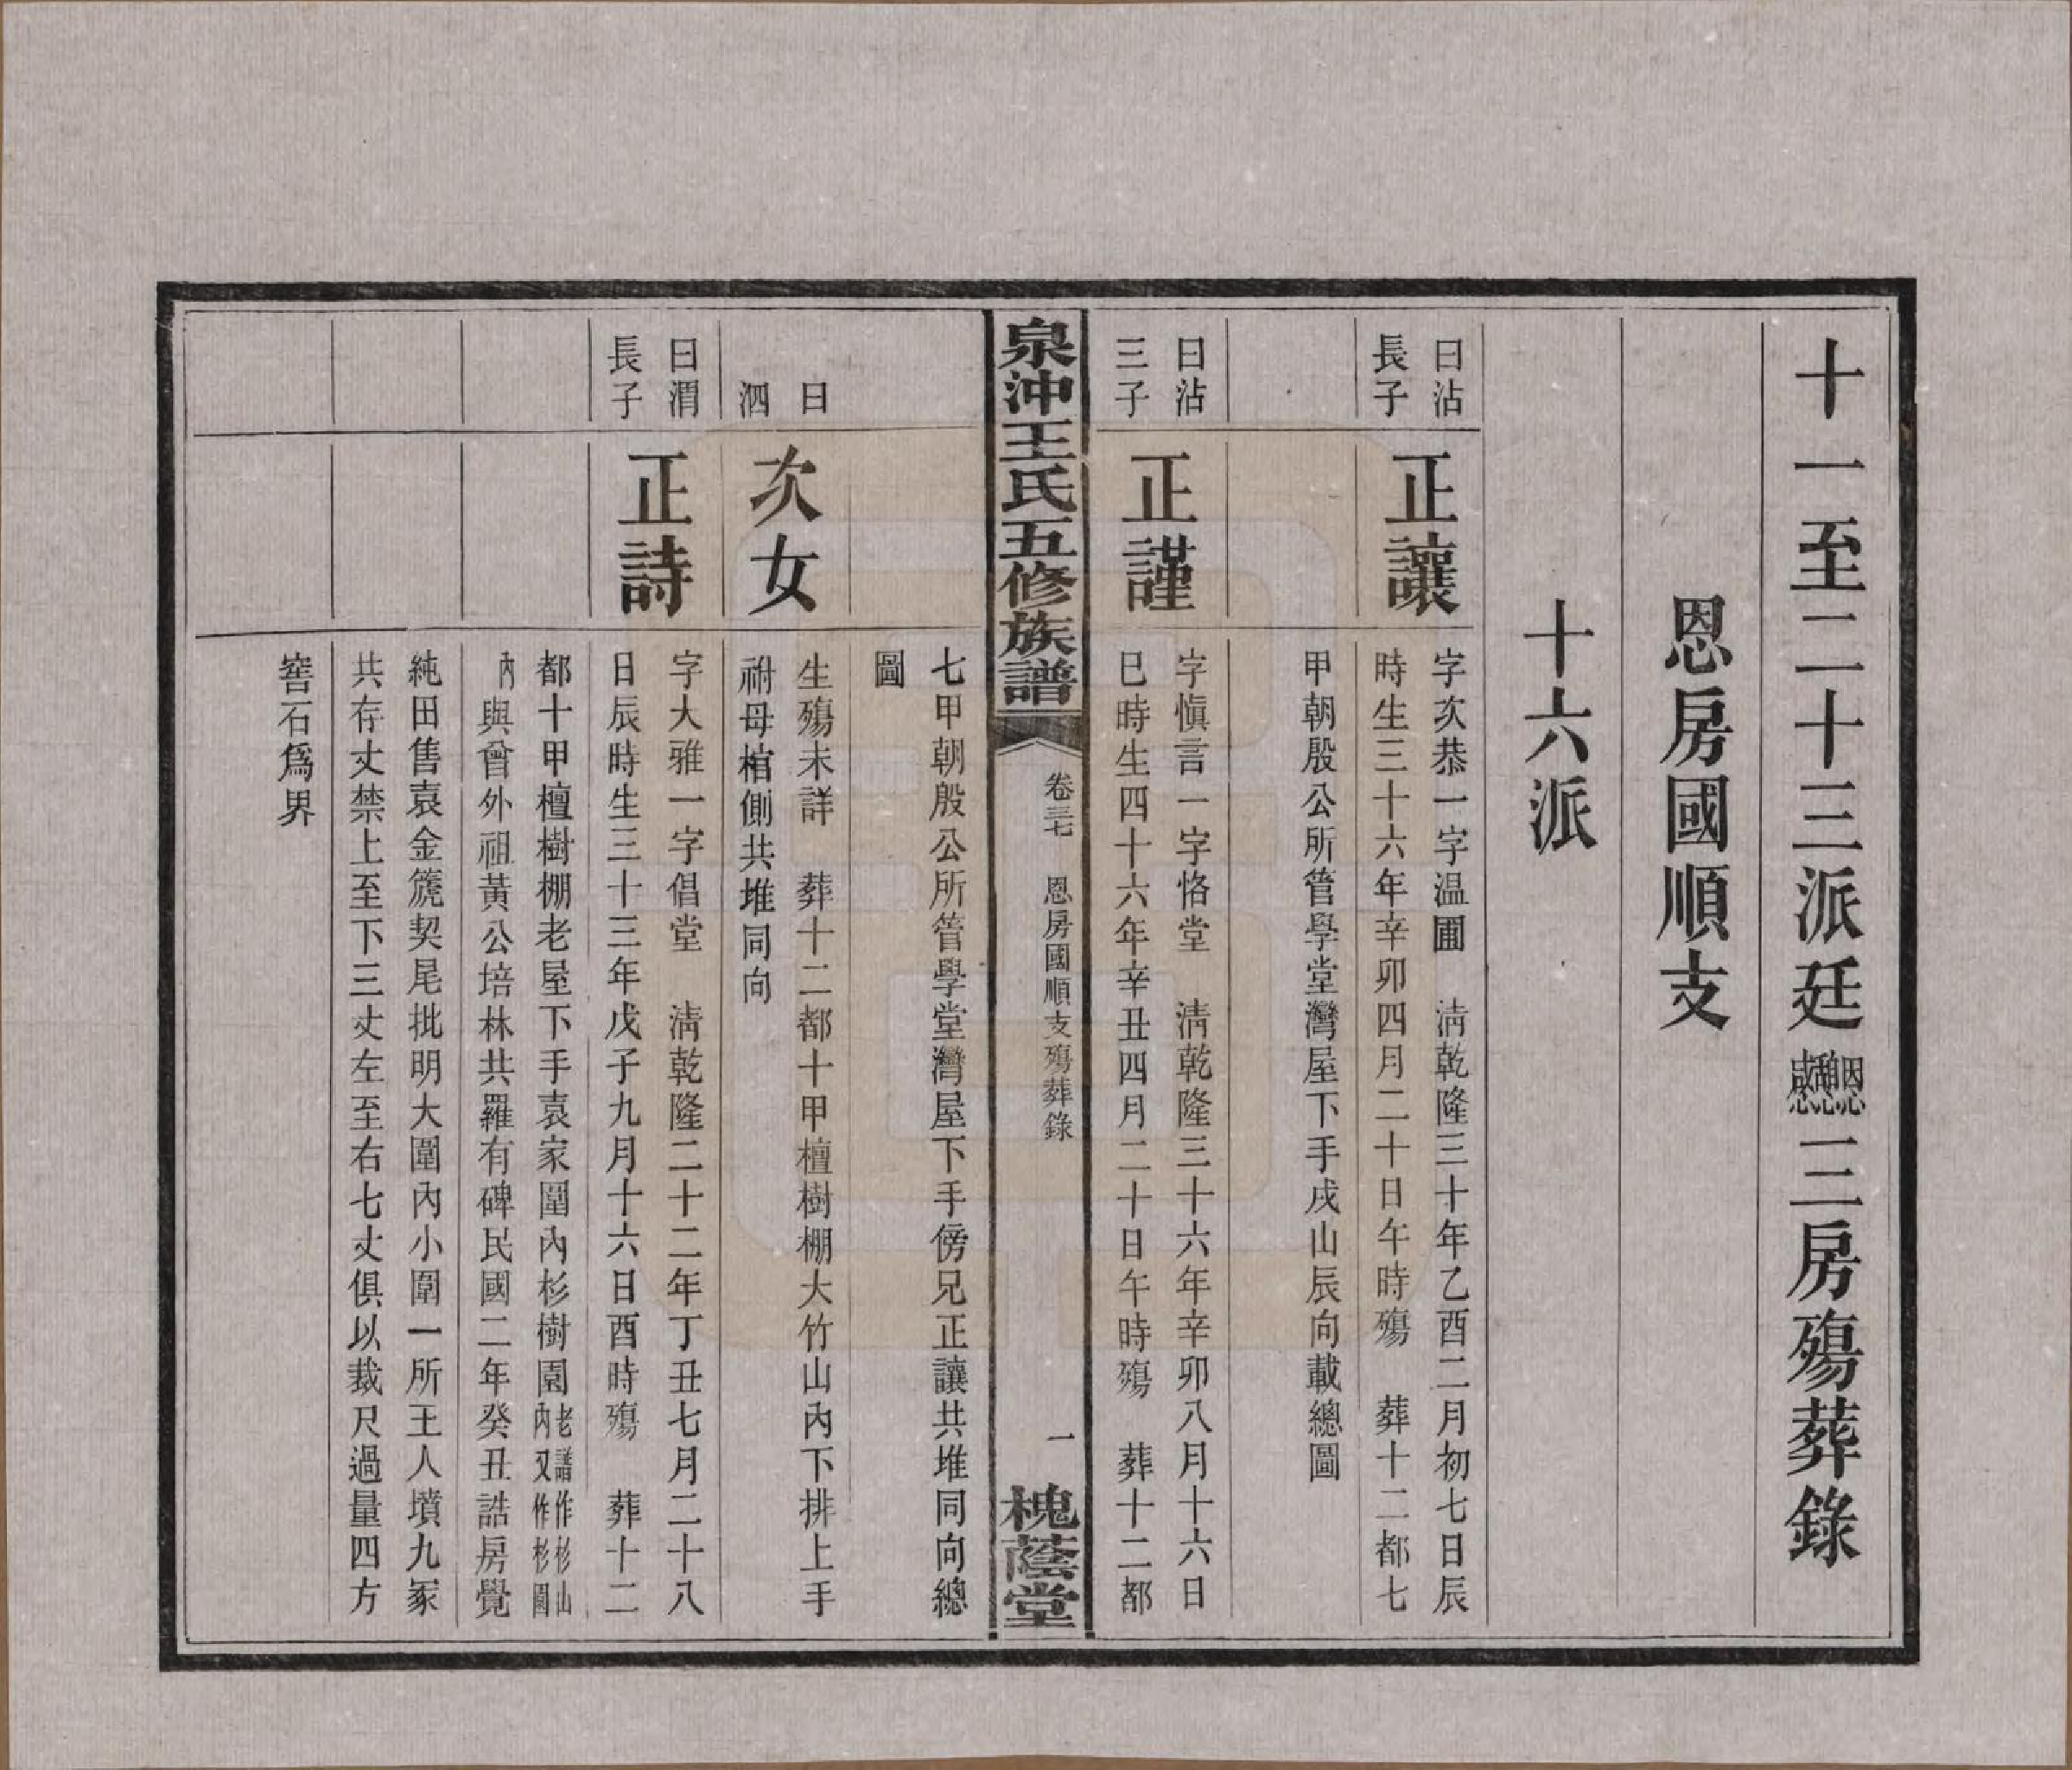 十一至二十三派廷恩憩感三房殤葬錄
恩房國順支
十六派
曰沾
長子
正讓
字次恭一字温圃　淸乾隆三十年乙酉二月初七日辰
時生三十六年辛卯四月二十日午時殤　葬十二都七
甲朝殷公所管學堂灣屋下手戌山辰向載總圖
曰沾
三子
正謹
字愼言一字恪堂　淸乾隆三十六年辛卯八月十六日
巳時生四十六年辛丑四月二十日午時殤　葬十二都
泉沖王氏五修族譜
卷三七　恩房國順支殤葬錄
一
槐蔭堂
七甲朝殷公所管學堂灣屋下手傍兄正讓共堆同向總
圖
曰
泗
次女
生殤未詳　葬十二都十甲檀樹棚大竹山內下排上手
祔母棺側共堆同向
曰渭
長子
正詩
字大雅一字倡堂　淸乾隆二十二年丁丑七月二十八
日辰時生三十三年戊子九月十六日酉時殤　葬十二
都十甲檀樹棚老屋下手袁家圍內杉樹園老譜作杉山內又作杉園
內與曾外祖黃公培林共羅有碑民國二年癸丑誥房覺
純田售袁金篪契尾批明大圍內小圍一所王人墳九冢
共存丈禁上至下三丈左至右七丈俱以裁尺過量四方
窖石爲界